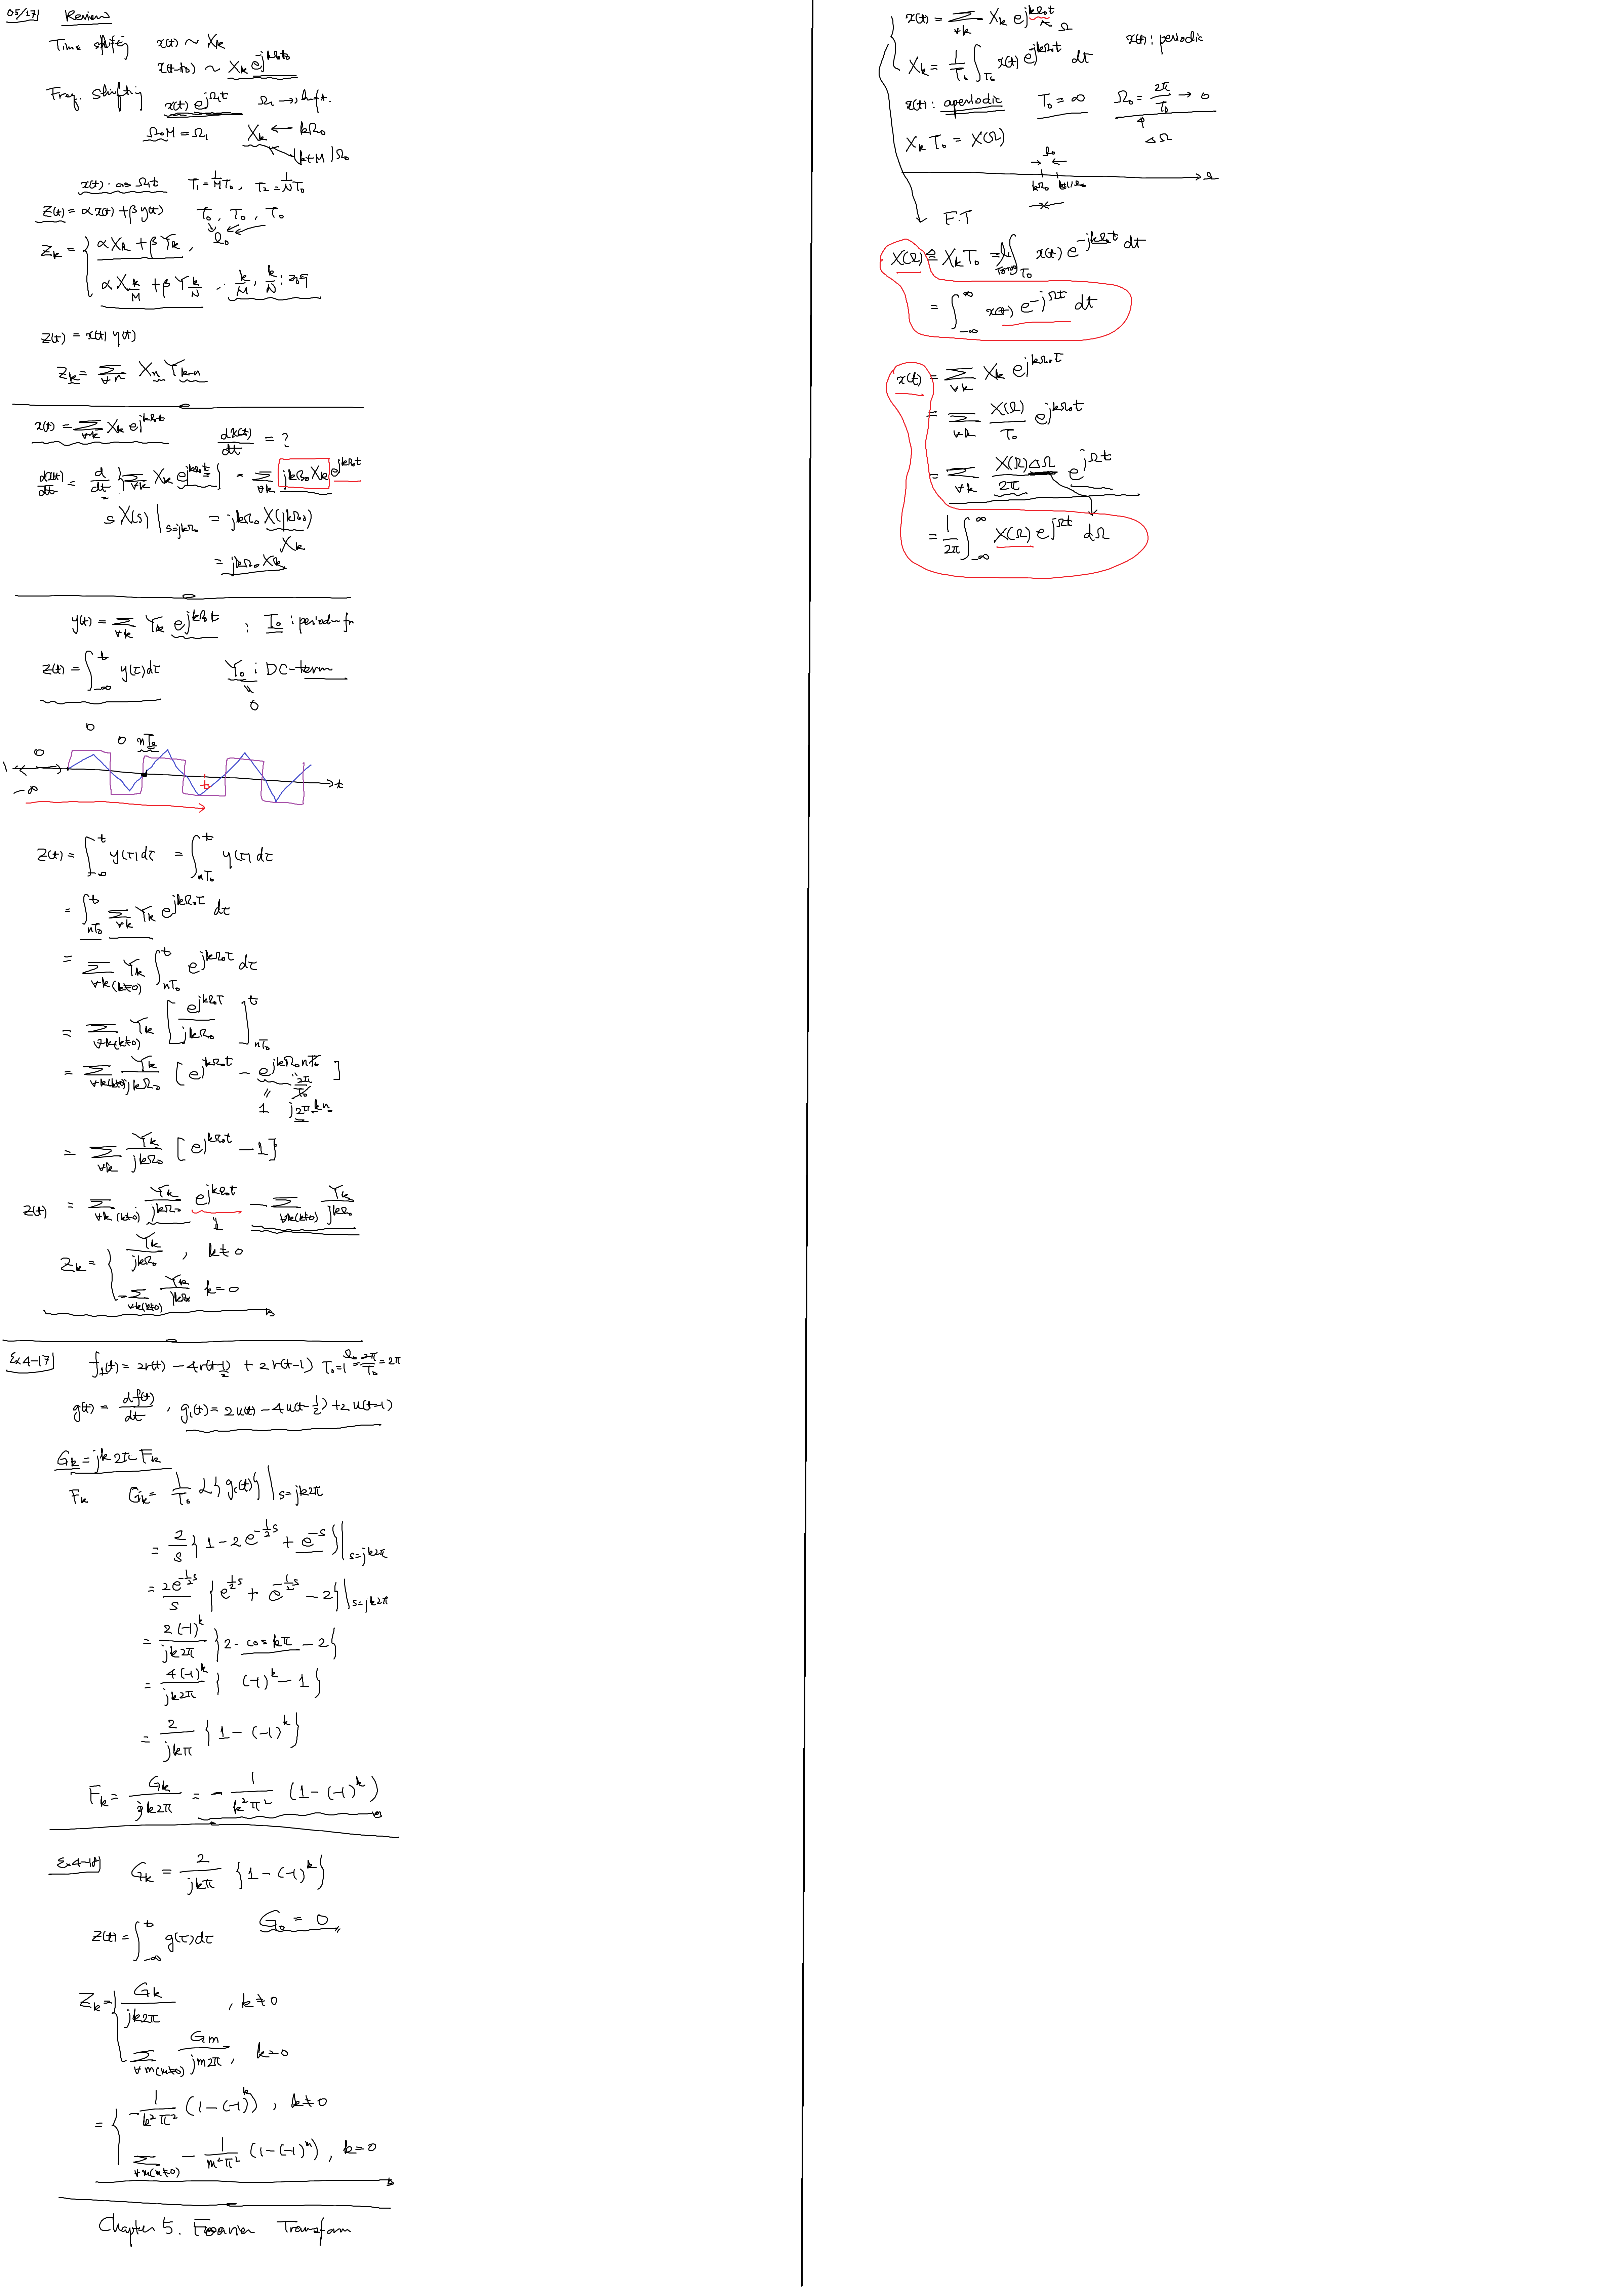 05/17 Review
Time shifting x(t) ~ X_k
x(t-t₀) ~ X_k e^{jkΩ₀t₀}
Freq. Shifting x(t) e^{jΩ₁t} Ω₁ → shift.
Ω₀M = Ω₁ X_k ← kΩ₀
(k+M)Ω₀
x(t)·cos Ω₁t T₁ = 1/M T₀, T₂ = 1/N T₀
z(t) = αx(t) + βy(t) T₀, T₀, T₀
Z_k = { αX_k + βY_k, Ω₀
αX_{k/M} + βY_{k/N}, k/M, k/N : 정수
z(t) = x(t) y(t)
Z_k = Σ_{∀n} X_n Y_{k-n}
x(t) = Σ_{∀k} X_k e^{jkΩ₀t}
dx(t)/dt = ?
dx(t)/dt = d/dt { Σ_{∀k} X_k e^{jkΩ₀t} } = Σ_{∀k} jkΩ₀X_k e^{jkΩ₀t}
s X(s) |_{s=jkΩ₀} = jkΩ₀ X(jkΩ₀)
X_k
= jkΩ₀ X_k
y(t) = Σ_{∀k} Y_k e^{jkΩ₀t} ; T₀ : period fn
z(t) = ∫_{-∞}^{t} y(τ)dτ Y₀ : DC-term
"
0
0
0 0 nT₀
t t
-∞
z(t) = ∫_{-∞}^{t} y(τ)dτ = ∫_{nT₀}^{t} y(τ)dτ
= ∫_{nT₀}^{t} Σ_{∀k} Y_k e^{jkΩ₀τ} dτ
= Σ_{∀k(k≠0)} Y_k ∫_{nT₀}^{t} e^{jkΩ₀τ} dτ
= Σ_{∀k(k≠0)} Y_k [ e^{jkΩ₀τ} / jkΩ₀ ]_{nT₀}^{t}
= Σ_{∀k(k≠0)} Y_k/jkΩ₀ [ e^{jkΩ₀t} - e^{jkΩ₀nT₀} ]
" 2π/T₀
1 j2πkn
= Σ_{∀k} Y_k/jkΩ₀ [ e^{jkΩ₀t} - 1 ]
z(t) = Σ_{∀k(k≠0)} Y_k/jkΩ₀ e^{jkΩ₀t} - Σ_{∀k(k≠0)} Y_k/jkΩ₀
1
Z_k = { Y_k/jkΩ₀ , k≠0
-Σ_{∀k(k≠0)} Y_k/jkΩ₀ k=0
Ex4-17 f₁(t) = 2r(t) - 4r(t-1/2) + 2r(t-1) T₀=1 Ω₀ = 2π/T₀ = 2π
g(t) = df(t)/dt , g₁(t) = 2u(t) - 4u(t-1/2) + 2u(t-1)
G_k = jk2π F_k
F_k G_k = 1/T₀ L{g₁(t)} |_{s=jk2π}
= 2/s { 1 - 2e^{-1/2 s} + e^{-s} } |_{s=jk2π}
= 2e^{-1/2 s}/s { e^{1/2 s} + e^{-1/2 s} - 2 } |_{s=jk2π}
= 2(-1)^k/jk2π { 2·cos kπ - 2 }
= 4(-1)^k/jk2π { (-1)^k - 1 }
= 2/jkπ { 1 - (-1)^k }
F_k = G_k/jk2π = - 1/k²π² (1 - (-1)^k)
Ex4-18 G_k = 2/jkπ { 1 - (-1)^k }
z(t) = ∫_{-∞}^{t} g(τ)dτ G₀ = 0
Z_k = { G_k/jk2π , k≠0
Σ_{∀m(m≠0)} G_m/jm2π , k=0
= { - 1/k²π² (1 - (-1)^k) , k≠0
Σ_{∀m(m≠0)} - 1/m²π² (1 - (-1)^m) , k=0
Chapter 5. Fourier Transform
x(t) = Σ_{∀k} X_k e^{jkΩ₀t} Ω
x(t) : periodic
X_k = 1/T₀ ∫_{T₀} x(t) e^{-jkΩ₀t} dt
x(t) : aperiodic T₀ = ∞ Ω₀ = 2π/T₀ → 0
ΔΩ
X_k T₀ = X(Ω)
Ω₀
kΩ₀ (k+1)Ω₀ Ω
F.T
X(Ω) ≜ X_k T₀ = lim_{T₀→∞} ∫_{T₀} x(t) e^{-jkΩ₀t} dt
= ∫_{-∞}^{∞} x(t) e^{-jΩt} dt
x(t) = Σ_{∀k} X_k e^{jkΩ₀t}
= Σ_{∀k} X(Ω)/T₀ e^{jkΩ₀t}
= Σ_{∀k} X(Ω)ΔΩ/2π e^{jΩt}
= 1/2π ∫_{-∞}^{∞} X(Ω) e^{jΩt} dΩ